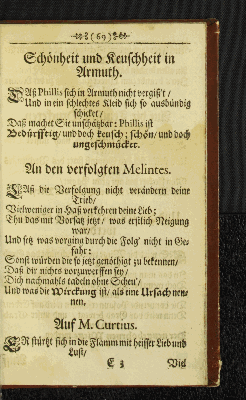 (69)
Schönheit und Keuschheit in
Armuth.
DAß Phillis sich in Armuth nicht vergist /
Und in ein schlechtes Kleid sich so ausbündig
schicket /
Daß machet Sie unschätzbar: Phillis ist
Bedürfftig / und doch keusch; schön / und doch
ungeschmücket.
An den verfolgten Melintes.
LAß die Verfolgung nicht verändern deine
Trieb /
Vielweniger in Haß verkehren deine Lieb;
Thu das mit Vorsatz jetzt / was erstlich Neigung
war /
Und setz was vorging durch die Folg' nicht in Ge-
fahr:
Sonst würden die so jetzt genöthigt zu bekennen /
Daß dir nichts vorzuwerffen sey /
Dich nachmahls tadeln ohne Scheu /
Und was die Wirckung ist / als eine Ursach nen-
nen.
Auf M. Curtius.
ER stürtzt sich in die Flamm mit heisser Lieb und
Lust /
E 3 Viel